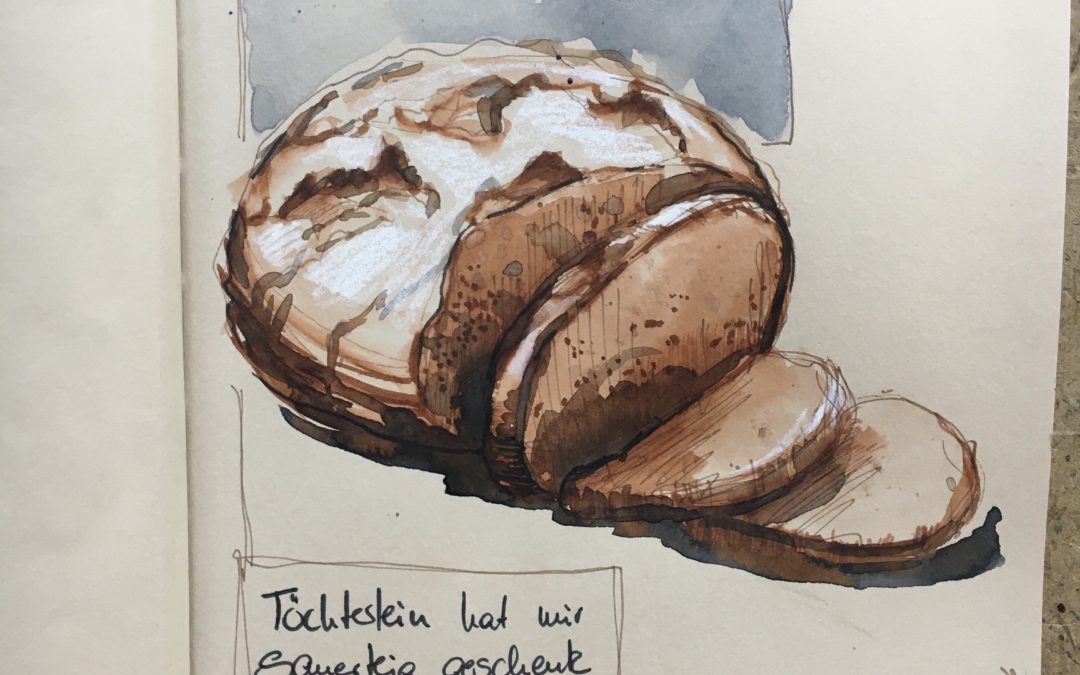 Töchterlein hat mir
Sauerteig geschenk